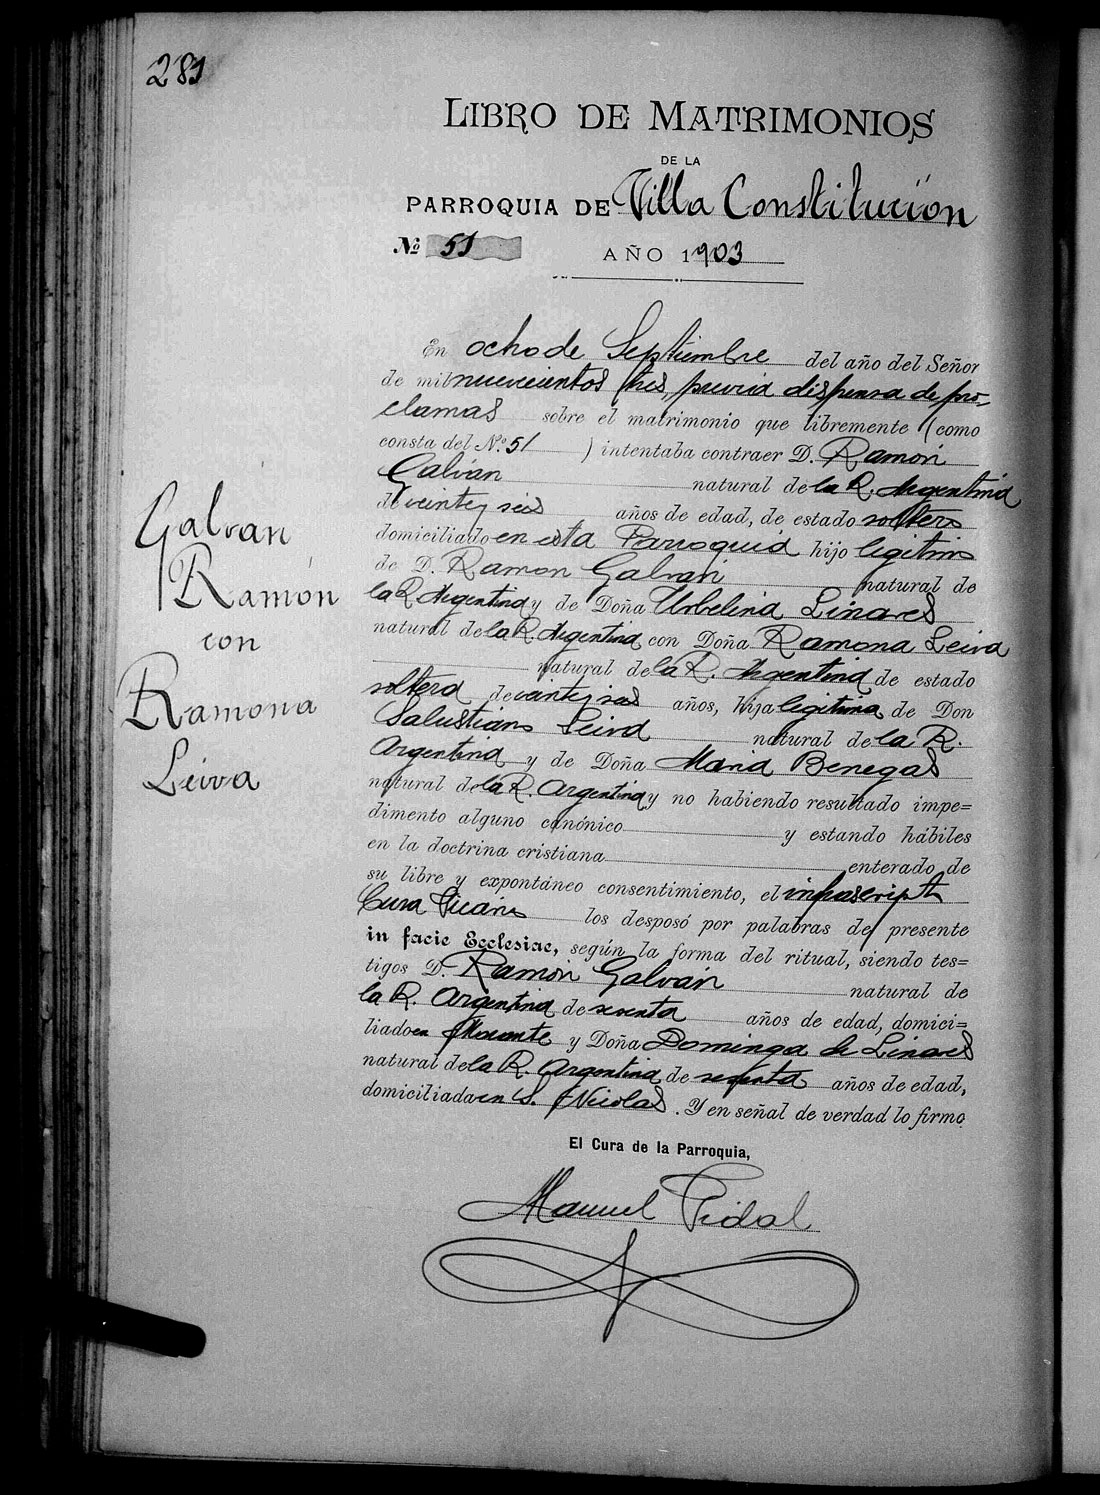 281
LIBRO DE MATRIMONIOS
DE LA
PARROQUIA DE Villa Constitución
Nº 51 AÑO 1903
En ocho de Septiembre del año del Señor
de mil nuevecientos tres, previa dispensa de pro-
clamas sobre el matrimonio que libremente (como
consta del Nº 51 ) intentaba contraer D. Ramón
Galván natural de la R. Argentina
de veinte y seis años de edad, de estado soltero
domiciliado en esta Parroquia hijo legitimo
de D. Ramon Galván natural de
la R. Argentina y de Doña Urbelina Linares
natural de la R. Argentina con Doña Ramona Leiva
natural de la R. Argentina de estado
soltera de veinte y seis años, hija legitima de Don
Salustiano Leiva natural de la R.
Argentina y de Doña Maria Benegas
natural de la R. Argentina y no habiendo resultado impe=
dimento alguno canónico y estando hábiles
en la doctrina cristiana enterado de
su libre y expontáneo consentimiento, el infrascripto
Cura Vicario los desposó por palabras de presente
in facie Ecclesiae, según la forma del ritual, siendo tes=
tigos D. Ramón Galván natural de
la R. Argentina de años de edad, domici=
liado en y Doña Dominga de Linares
natural de la R. Argentina de años de edad,
domiciliada en S. Nicolas. Y en señal de verdad lo firmo
El Cura de la Parroquia,
Manuel Vidal
Galván
Ramón
con
Ramona
Leiva